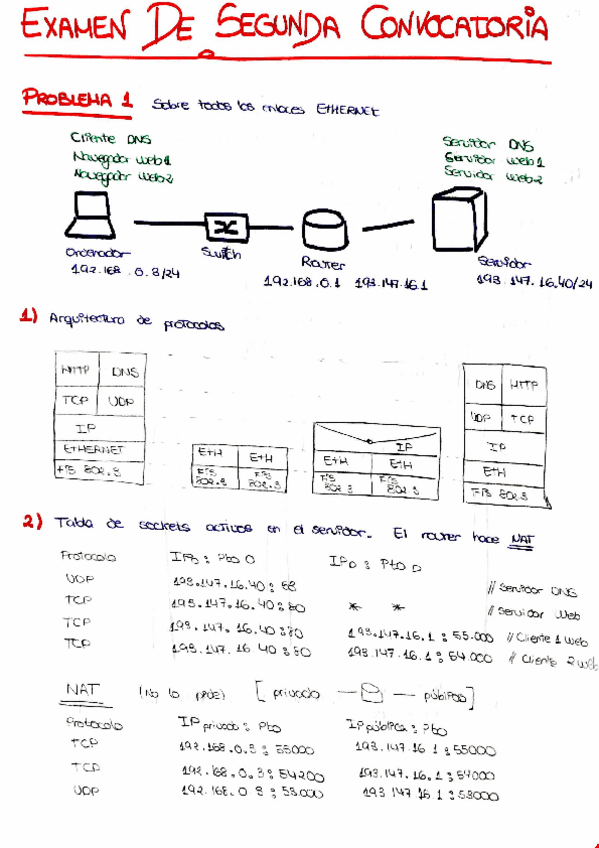 EXAMEN DE SEGUNDA CONVOCATORIA
PROBLEMA 1 Sobre todos los enlaces ETHERNET
Cliente DNS
Navegador web 1
Navegador web 2
Servidor DNS
Servidor web 1
Servidor web 2
Ordenador
192.168.0.3/24
Switch
Router
192.168.0.1 193.147.16.1
Servidor
193.147.16.40/24
1) Arquitectura de protocolos
HTTP DNS
TCP UDP
IP
ETHERNET
FIS 802.3
ETH ETH
FIS 802.3 FIS 802.3
IP
ETH ETH
FIS 802.3 FIS 802.3
DNS HTTP
UDP TCP
IP
ETH
FIS 802.3
2) Tabla de sockets activos en el servidor. El router hace NAT
Protocolo IPo : Pto o IPD : Pto D
UDP 193.147.16.40 : 53 // Servidor DNS
TCP 193.147.16.40 : 80 * * // Servidor Web
TCP 193.147.16.40 : 80 193.147.16.1 : 55.000 // Cliente 1 web
TCP 193.147.16.40 : 80 193.147.16.1 : 54.000 // Cliente 2 web
NAT (No lo pide) [ privado — — público ]
Protocolo IP privado : Pto IP pública : Pto
TCP 192.168.0.3 : 55000 193.147.16.1 : 55000
TCP 192.168.0.3 : 54200 193.147.16.1 : 54000
UDP 192.168.0.3 : 53000 193.147.16.1 : 53000